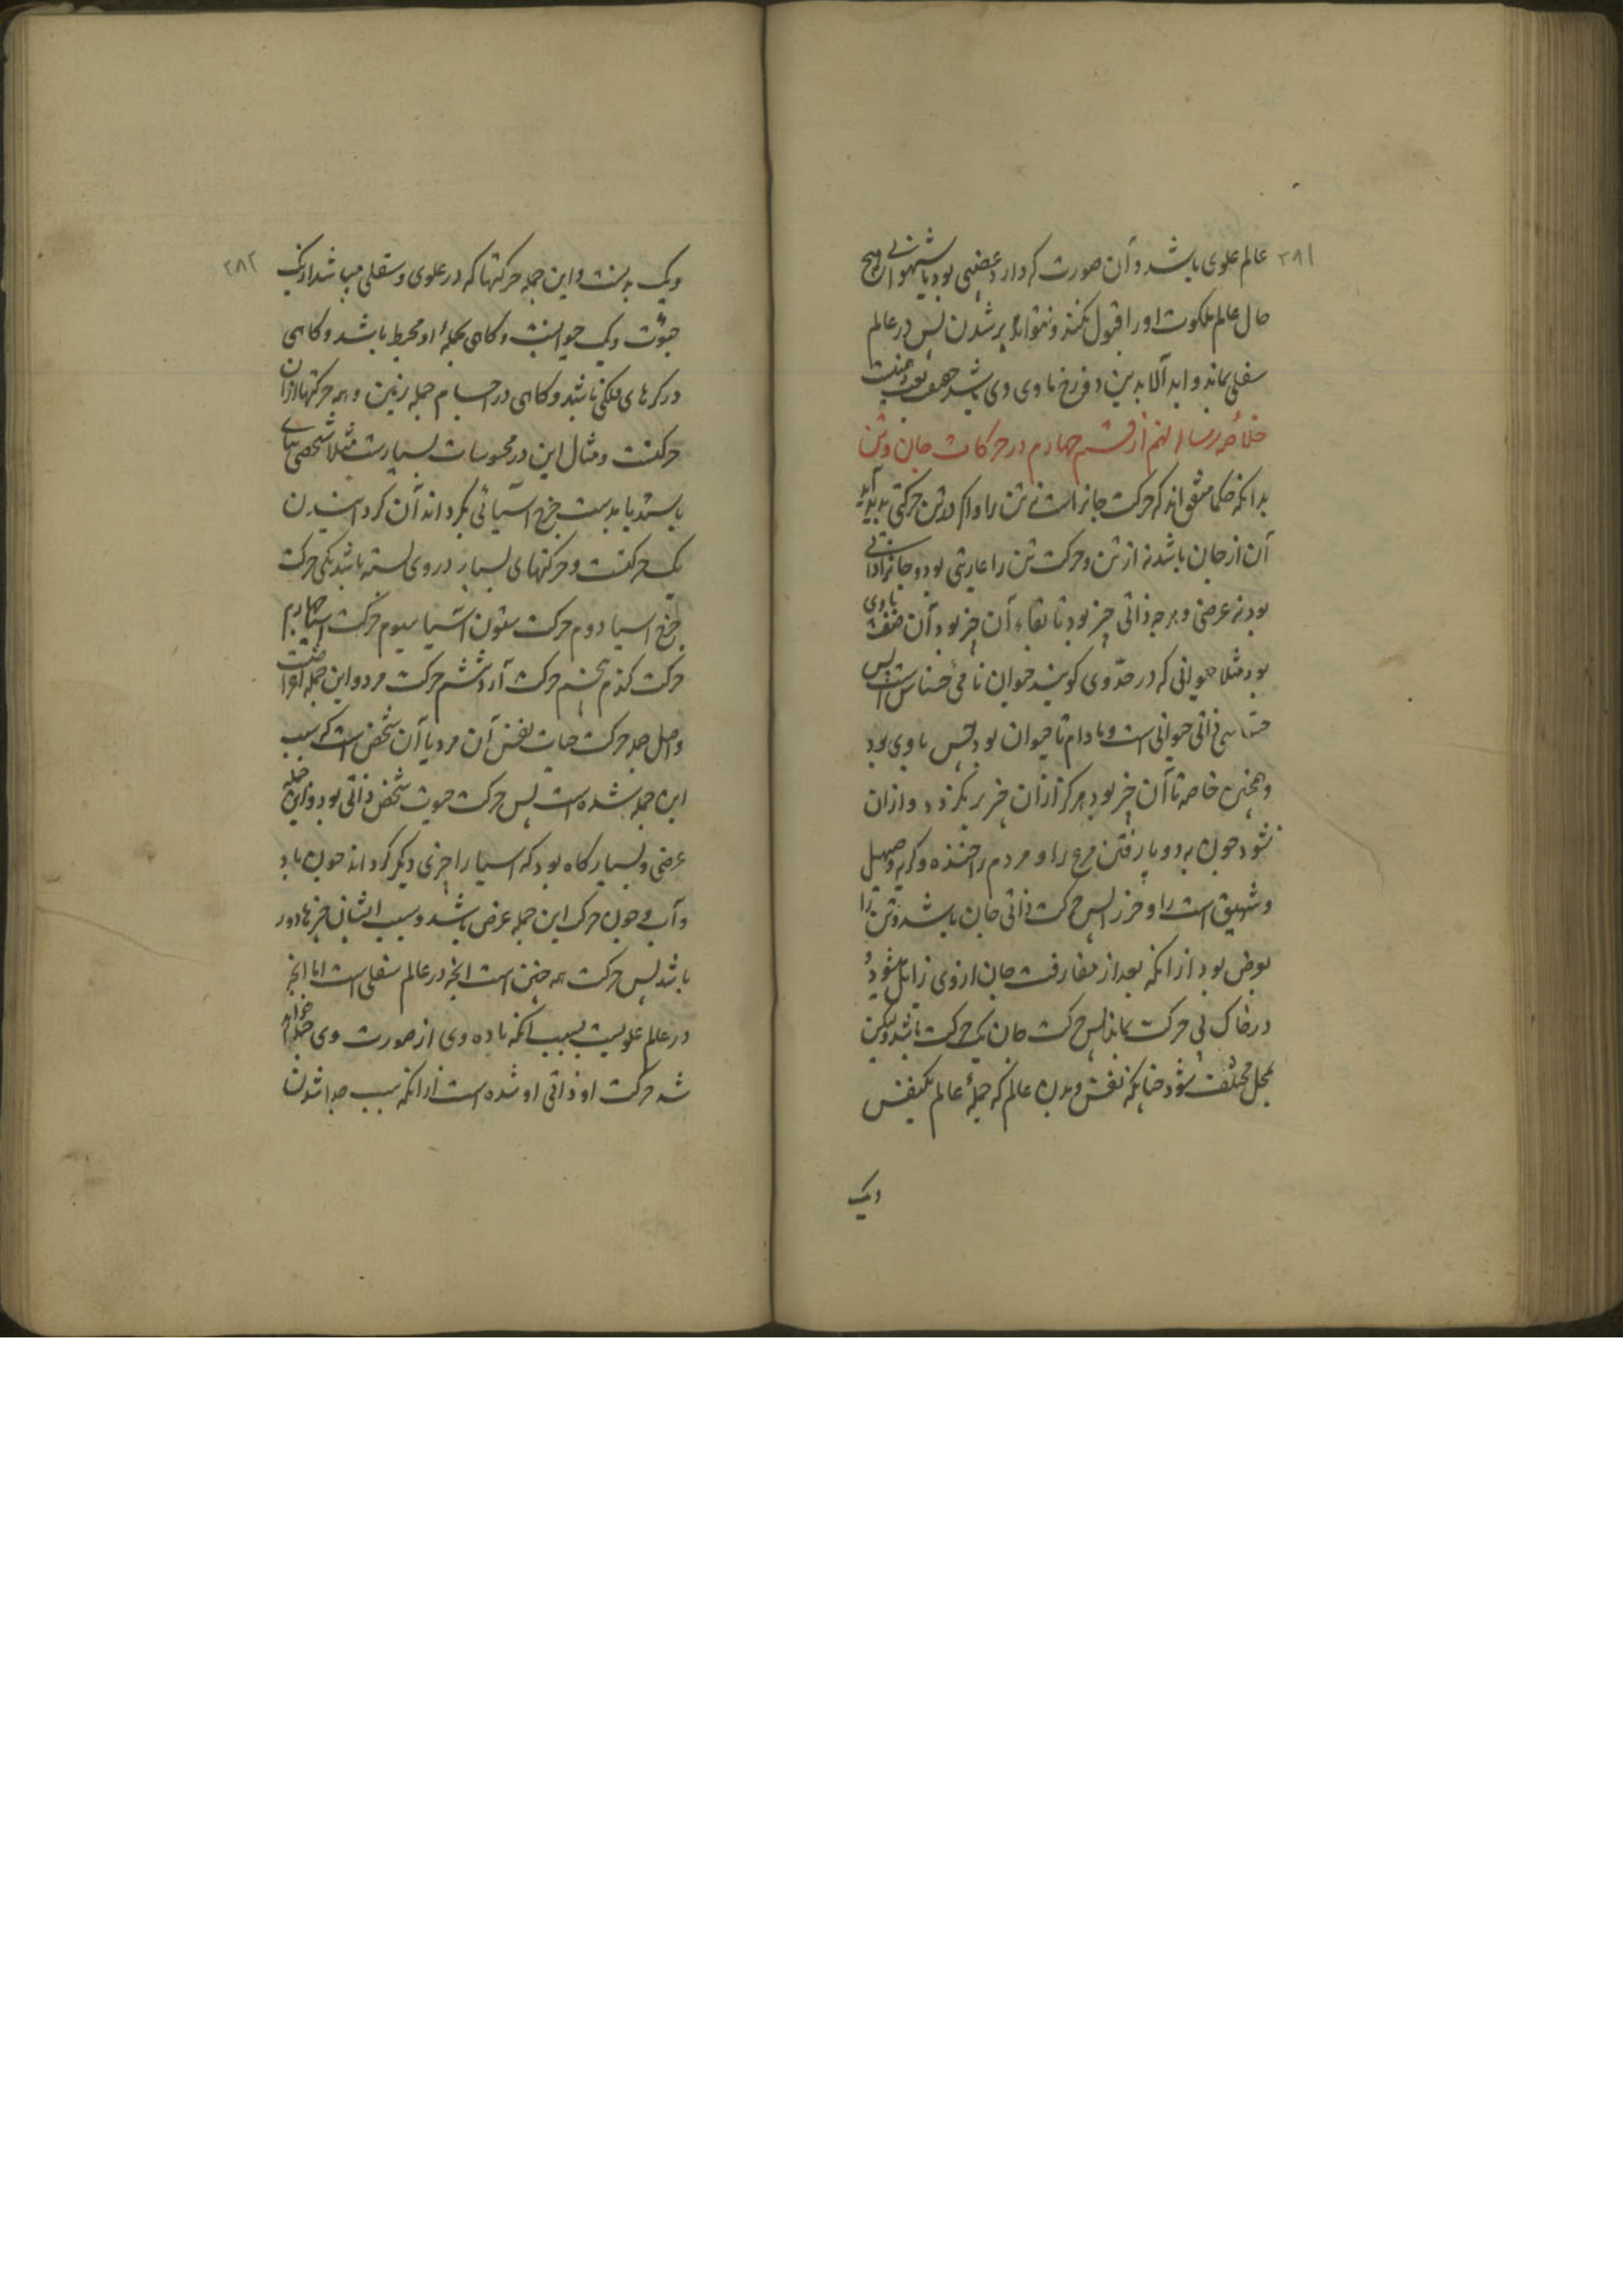 ۳۸۱
عالم علوی باشد و آن صورت که دارد غضبی بود یا شهوانی هیچ
حال عالم ملکوت او را قبول نکند و نتواند بر شدن پس در عالم
سفلی بماند و ابد الابدین دوزخ ماوی وی باشد
خلاصه رساله نهم از قسم چهارم در حرکات جان و تن
بدانکه حکما متفق اند که حرکت جانراست نه تن را و اگر در تن حرکتی پدید آید
آن از جان باشد نه از تن و حرکت تن را عاریتی بود و جانرا ذاتی
بود نه عرضی و هر چه ذاتی چیز بود تا بقاء آن چیز بود آن صفت باوی
بود مثلا حیوانی که در حدّ وی گویند حیوان نامیٔ حساس است پس
حساسی ذاتی حیوانی است و مادام تا حیوان بود حس باوی بود
و همچنین خاصه تا آن چیز بود هرگز از آن چیز بر نگردد و از آن
نشود چون به دو پا رفتن مرغ را و مردم را خنده و گریه و صهیل
و شهیق است را و خر را پس حرکت ذاتی جان باشد و تن را
بعرض بود از انکه بعد از مفارقت جان از وی زایل میشود و
در خاک بی حرکت بماند پس حرکت جان یک حرکت باشد ولیکن
بمحل مختلف شود چنانکه نفس و بدن عالم که جملهٔ عالم یکنفس
ویک
۳۸۲
ویک بدنست و این جمله حرکتها که در علوی و سفلی میباشد از یک
حیوت و یک حیوانیست و گاهی بجملهٔ او محیط باشد و گاهی
در کرهای فلکی باشد و گاهی در اجسام جمله زمین و همه حرکتها از آن
حرکتست و مثال این در محسوسات بسیارست مثلا شخصی بپای
بایستد یا بدست چرخ آسیائی بگرداند آن گردانیدن
یک حرکتست و حرکتهای بسیار در وی بسته باشد یکی حرکت
چرخ آسیا دوم حرکت ستون آسیا سیوم حرکت آسیا چهارم
حرکت گندم پنجم حرکت آرد ششم حرکت مرد و این جمله
واصل جمله حرکت حیات نفس آن مرد یا آن شخص است که سبب
این جمله شده است پس حرکت حیوت شخص ذاتی بود و این جمله
عرضی و بسیار گاه بود که آسیا را چیزی دیگر گرداند چون باد
و آب و چون حرکت این جمله عرض باشد و سبب ایشان چیزها دور
باشد پس حرکت همه چنین است انچه در عالم سفلی است اما انچه
در عالم علویست بسبب انکه ماده وی از صورت وی جدا
شد حرکت او ذاتی او شده است از انکه سبب جدا شدن